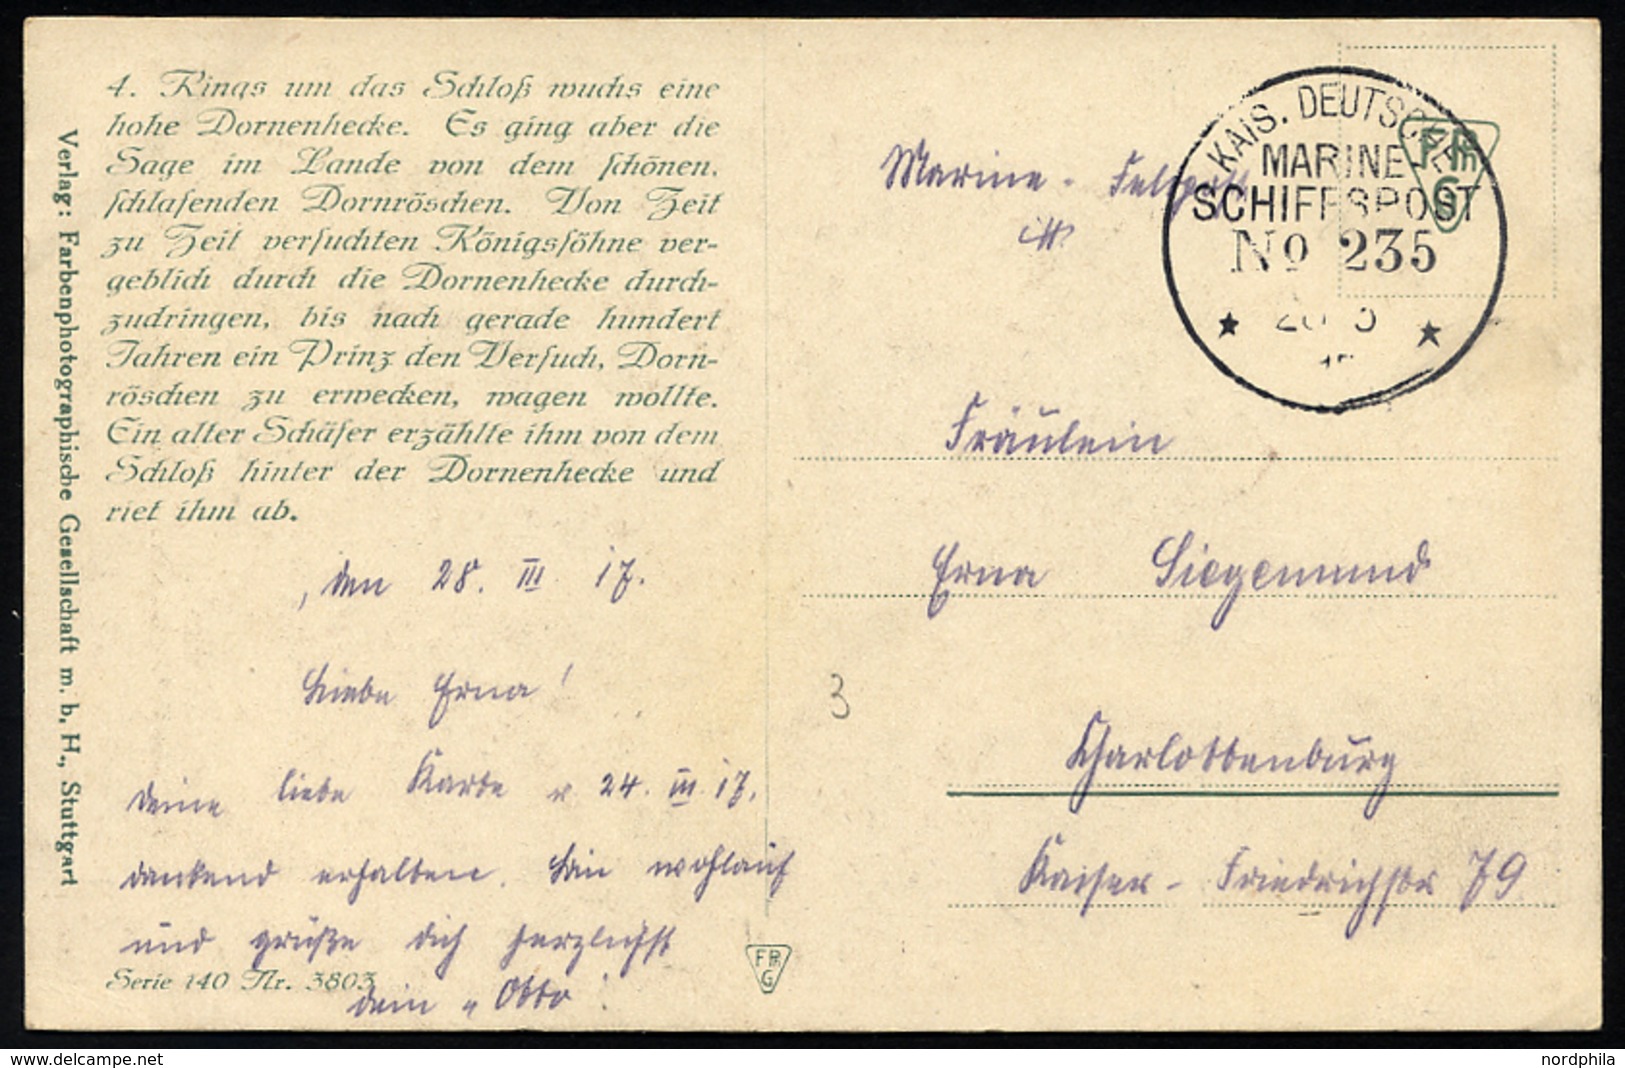 4. Rings um das Schloß wuchs eine
hohe Dornenhecke. Es ging aber die
Sage im Lande von dem schönen,
schlafenden Dornröschen. Von Zeit
zu Zeit versuchten Königssöhne ver-
geblich durch die Dornenhecke durch-
zudringen, bis nach gerade hundert
Jahren ein Prinz den Versuch, Dorn-
röschen zu erwecken, wagen wollte.
Ein alter Schäfer erzählte ihm von dem
Schloß hinter der Dornenhecke und
riet ihm ab.
Verlag: Farbenphotographische Gesellschaft m. b. H., Stuttgart
, den 28. III 17.
Liebe Erna!
Deine liebe Karte v. 24. III. 17.
dankend erhalten. Bin wohlauf
und grüße dich herzlichst
dein „Otto".
Serie 140 Nr. 3803
FPhG
Marine - Feldpost
KAIS. DEUTSCHE
MARINE
SCHIFFSPOST
No 235
FPhG
Fräulein
Erna Siegemund
3
Charlottenburg
Kaiser-Friedrichstr 79
nordphila
www.delcampe.net